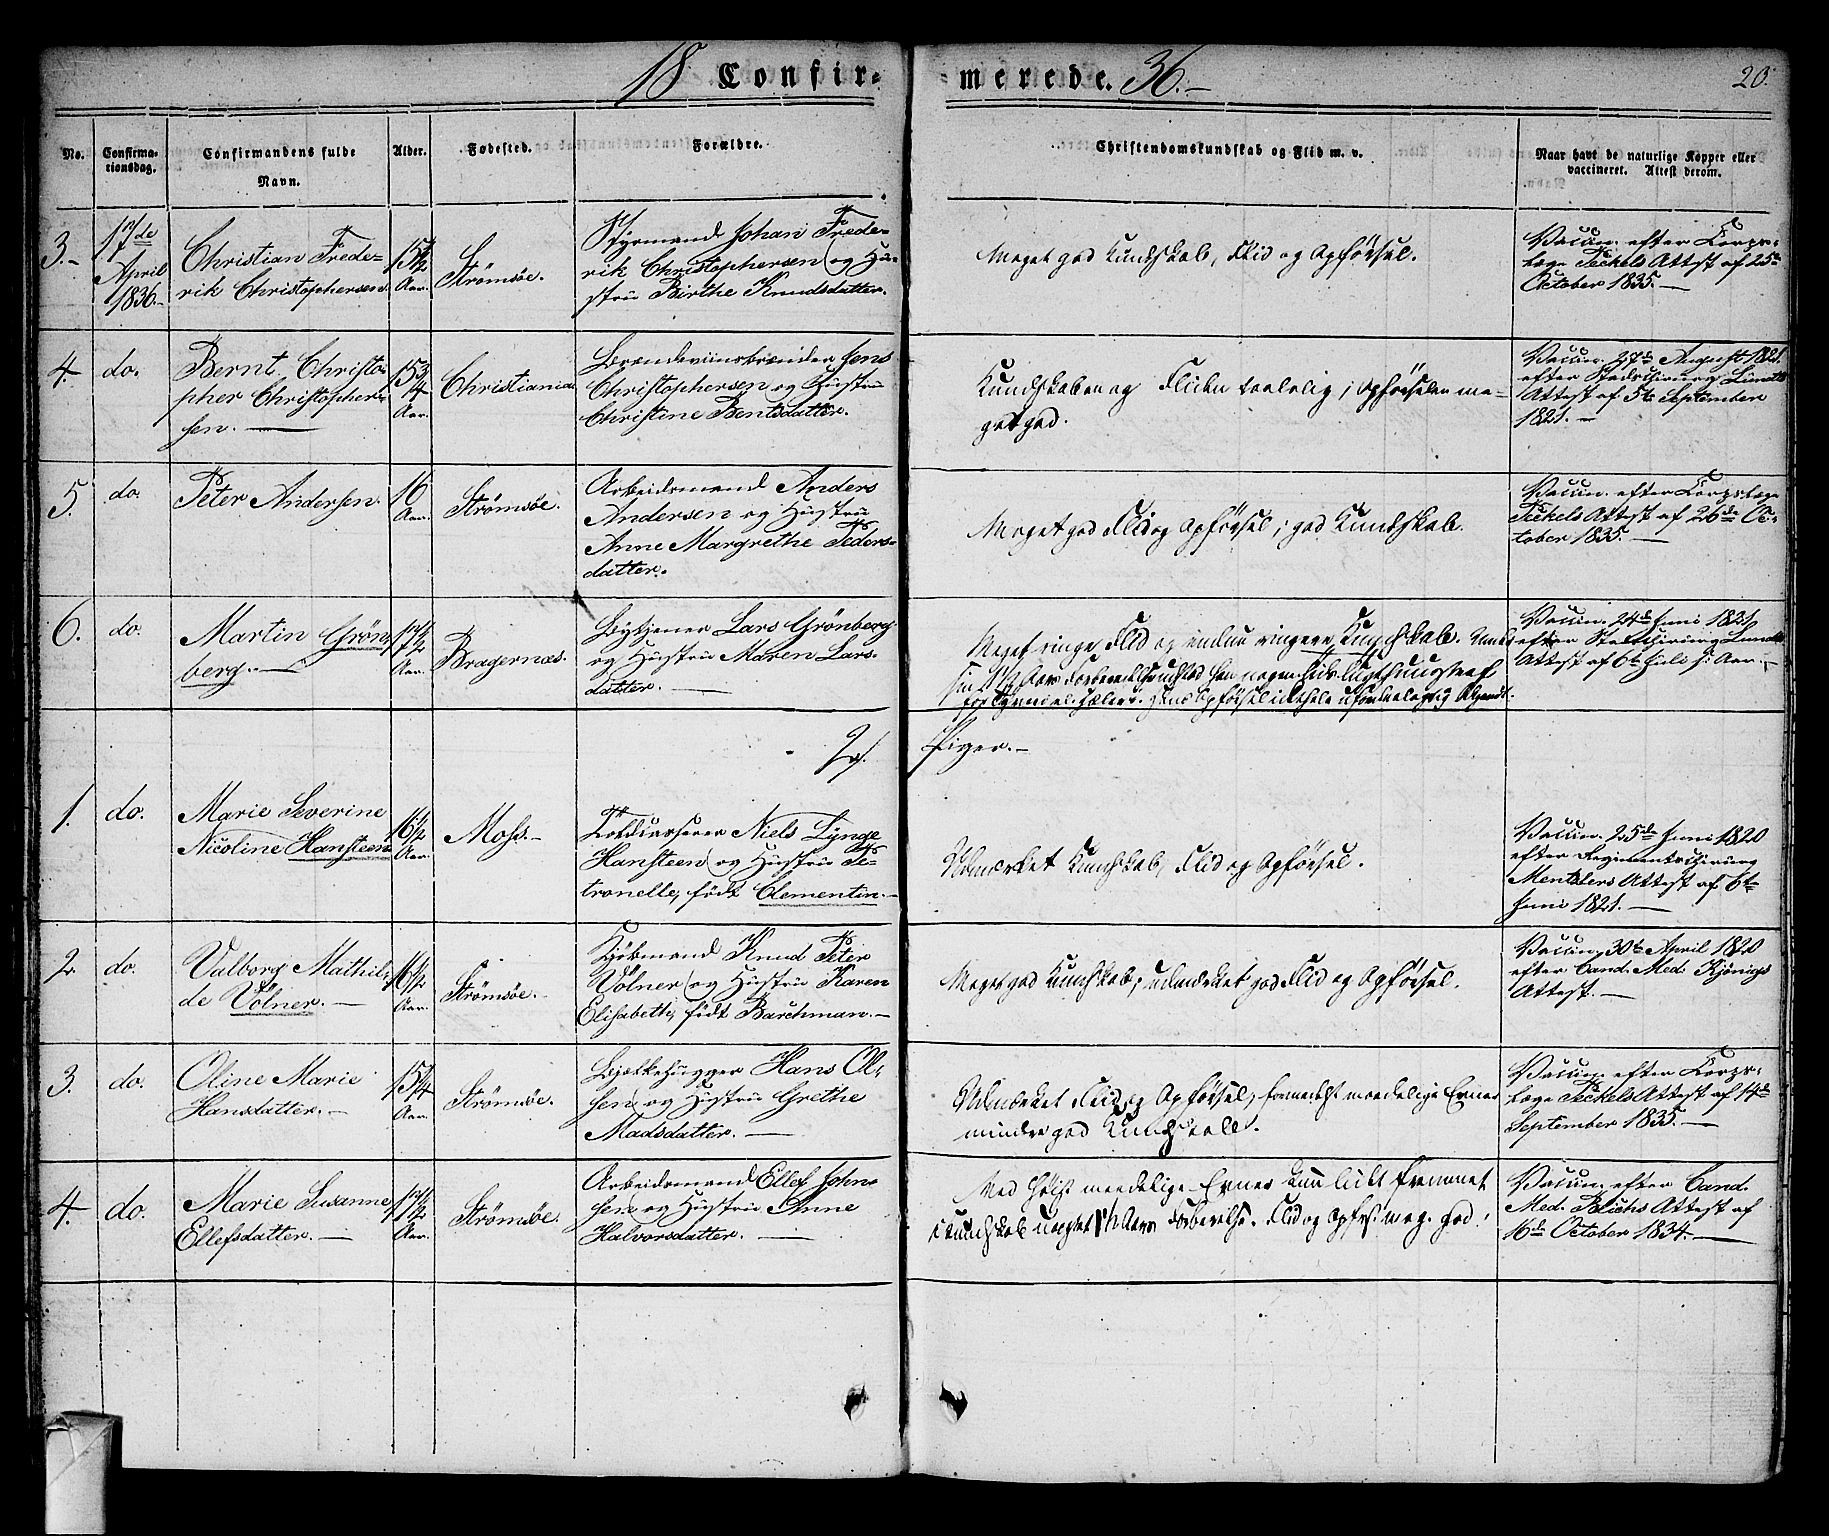 18 Confir-
merede. 36.-
20.
No.
Confirma-
tionsdag.
Confirmandens fulde
Navn.
Alder.
Fødested.
Forældre.
Christendomskundskab og Flid m. v.
Naar havt de naturlige Kopper eller
vaccineret. Attest derom.
3.-
17de
April
1836.-
Christian Frede-
rik Christophersen
15½
Aar.
Strömsöe.
Styrmand Johan Frede-
rik Christophersen og Hu-
stru Birthe Knudsdatter.
Meget god Kundskab, Flid og Opførsel.
Vaccin. efter Corps-
læge Teckels Attest af 25de
October 1835.-
4.
do.
Bernt Christo-
pher Christopher-
sen.-
15¾
Aar.
Christiania
Brændeviinsbrænder Jens
Christophersen og Hustru
Christine Bentsdatter.
Kundskaben og Fliden taalelig; Opførselen me-
get god.
Vaccin. 27de August 1821
efter Stadschirurg
Attest af 5te September
1821.-
5.
do.
Peter Andersen.
16
Aar.
Strömsöe.
Arbeidsmand Anders
Andersen og Hustru
Anne Margrethe Peders-
datter.
Meget god Flid og Opførsel; god Kundskab.
Vaccin. efter Corpslæge
Teckels Attest af 26de Oc-
tober 1835.-
6.
do.
Martin Grön-
berg.-
17½
Aar.
Bragernæs.
Bytjener Lars Grönberg
og Hustru Maren Lars-
datter.-
Meget ringe Flid og endnu ringere Kundskab.
Vaccin. 24de Juni 1821
efter Stadschirurg
Attest af 6te Juli s: Aar.-
2/.
Piger.-
1.
do.
Marie Severine
Nicoline Hansteen
16½
Aar.
Moss.-
Toldcasserer Niels Lynge
Hansteen og Hustru Pe-
tronelle, født Clementin.-
Udmærket Kundskab, Flid og Opførsel.
Vaccin. 25de Juni 1820
efter Regimentschirurg
Mentzlers Attest af 6te
Juni 1821.-
2
do.
Valborg Mathil-
de Völner.-
16½
Aar.
Strömsöe.-
Kjøbmand Knud Peter
Völner og Hustru Karen
Elisabeth, født Barchman.-
Meget god Kundskab; udmærket god Flid og Opførsel.
Vaccin. 30te April 1820
efter Cand. Med. Kjönigs
Attest.-
3.
do.
Oline Marie
Hansdatter.-
15¼
Aar.
Strömsöe.
Bjelkehugger Hans Ol-
sen og Hustru Grethe
Madsdatter.-
Udmærket Flid og Opførsel, formedelst maadelige Evner
mindre god Kundskab.
Vaccin. efter Corps-
læge Teckels Attest af 14de
September 1835.-
4.
do.
Marie Susanne
Ellefsdatter.-
17½
Aar.
Strömsöe.
Arbeidsmand Ellef John-
sen og Hustru Anne
Halvorsdatter.-
Med høist maadelige Evner kun lidet fremmet
i Kundskab uagtet 1½ Aars Forberedelse. Flid og Opførs. meg. god.
Vaccin. efter Cand.
Med. Blichs Attest af
16de October 1834.-